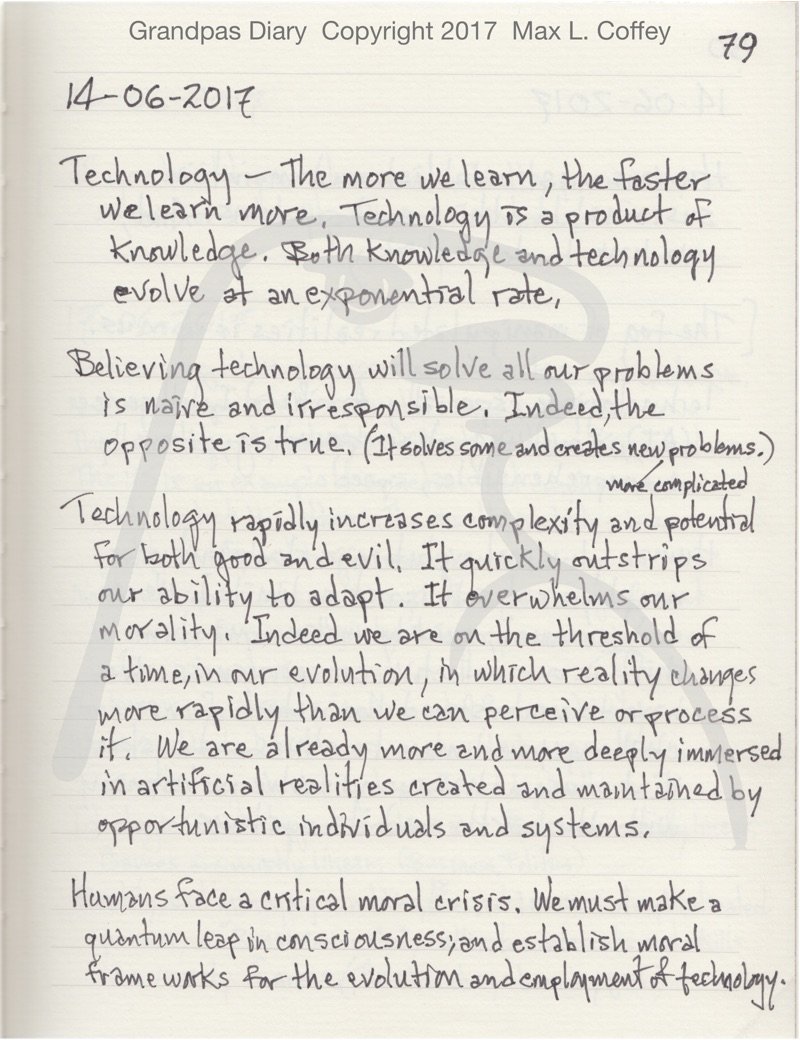 Grandpas Diary Copyright 2017 Max L. Coffey
79
14-06-2017
Technology — The more we learn, the faster
we learn more. Technology is a product of
knowledge. Both knowledge and technology
evolve at an exponential rate.
Believing technology will solve all our problems
is naïve and irresponsible. Indeed, the
opposite is true. (It solves some and creates new problems.)
more complicated
Technology rapidly increases complexity and potential
for both good and evil. It quickly outstrips
our ability to adapt. It overwhelms our
morality. Indeed we are on the threshold of
a time, in our evolution, in which reality changes
more rapidly than we can perceive or process
it. We are already more and more deeply immersed
in artificial realities created and maintained by
opportunistic individuals and systems.
Humans face a critical moral crisis. We must make a
quantum leap in consciousness; and establish moral
frameworks for the evolution and employment of technology.